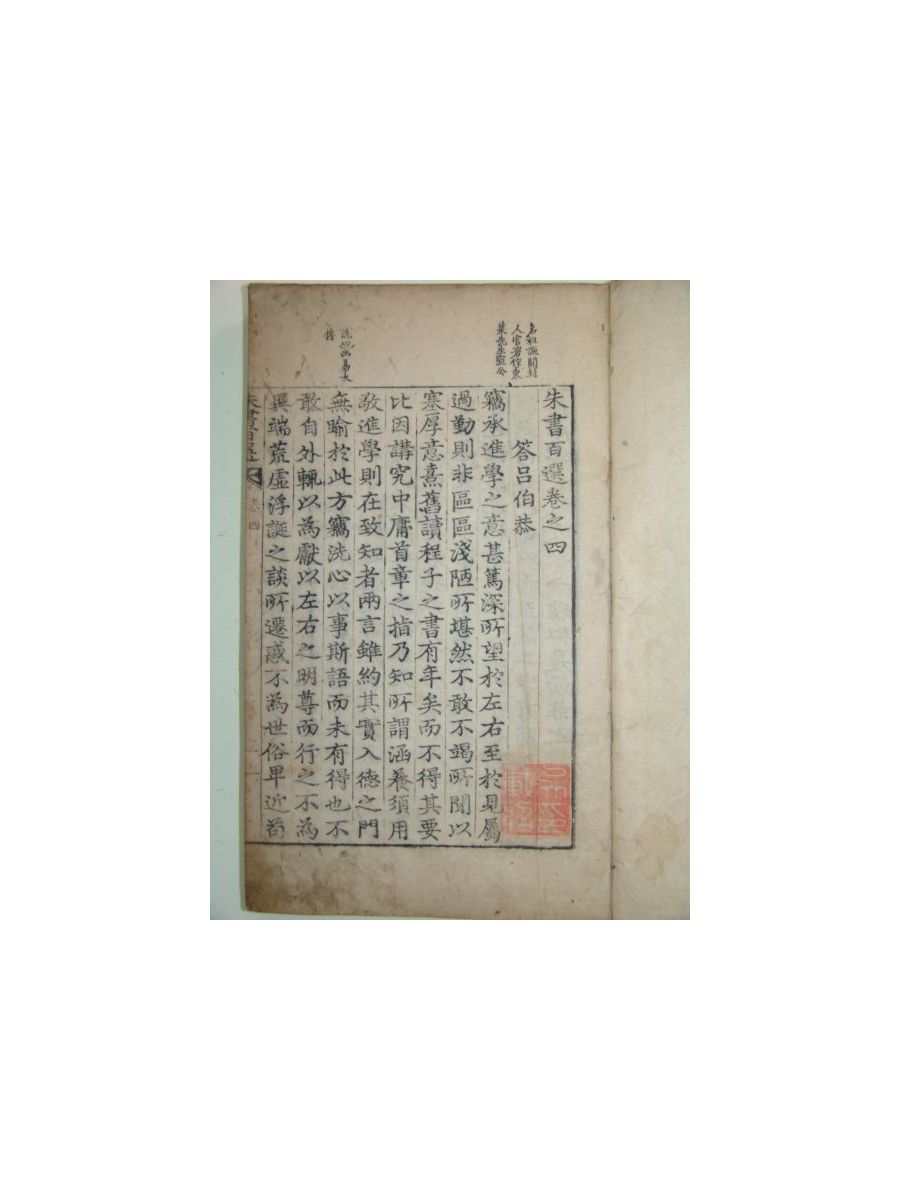 朱書百選卷之四
答呂伯恭
竊承進學之意甚篤深所望於左右至於見屬
過勤則非區區淺陋所堪然不敢不竭所聞以
塞厚意熹舊讀程子之書有年矣而不得其要
比因講究中庸首章之指乃知所謂涵養須用
敬進學則在致知者兩言雖約其實入德之門
無踰於此方竊洗心以事斯語而未有得也不
敢自外輒以為獻以左右之明尊而行之不為
異端荒虛浮誕之談所遷惑不為世俗卑近苟
名祖謙開封
人官著作東
萊先生
朱書百選
卷四